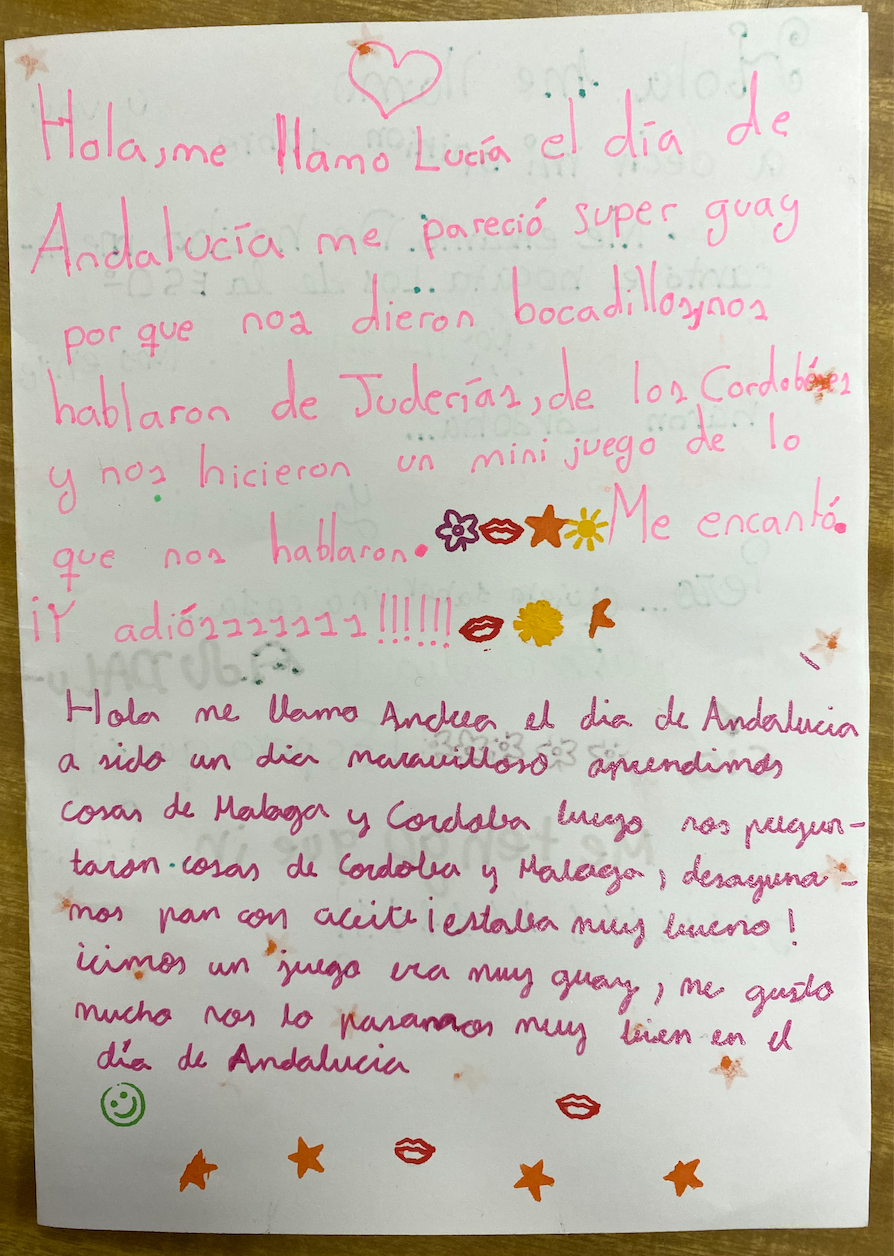 Hola, me llamo Lucía el día de
Andalucía me pareció super guay
por que nos dieron bocadillos, nos
hablaron de Juderías, de los Cordobéses
y nos hicieron un mini juego de lo
que nos hablaron. Me encantó.
¡Y adiósssssss!!!!!!
Hola me llamo Andrea el dia de Andalucia
a sido un dia maravilloso aprendimos
cosas de Malaga y Cordoba luego nos pregun-
taron cosas de Cordoba y Malaga, desayuna-
mos pan con aceite ¡estaba muy bueno!
icimos un juego era muy guay, me gusto
mucho nos lo pasamos muy bien en el
día de Andalucia